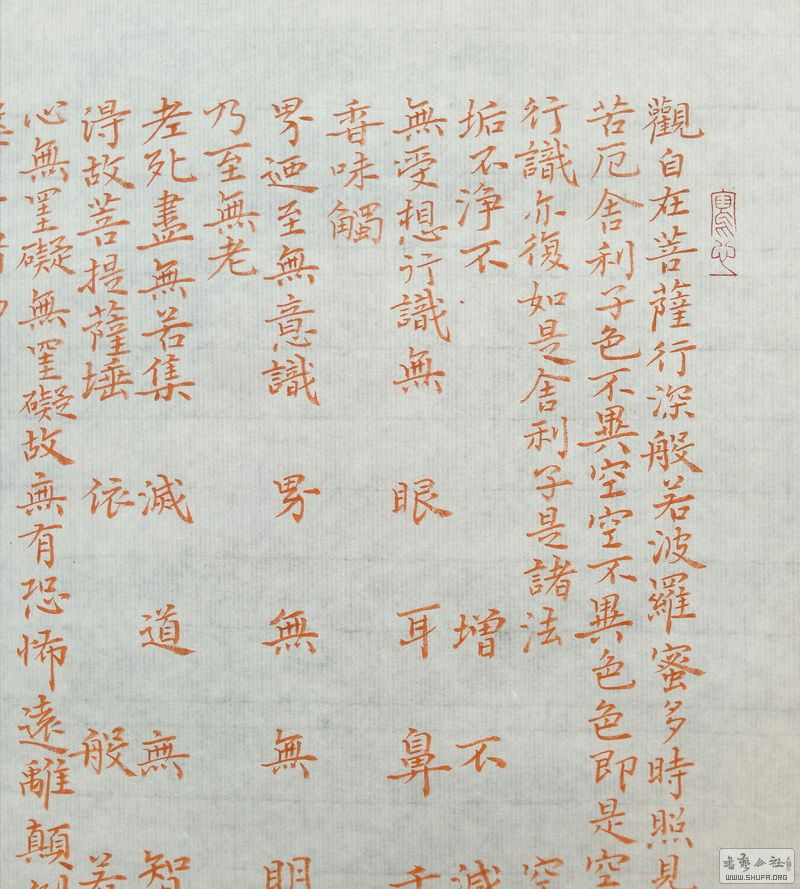 觀自在菩薩行深般若波羅蜜多時照見
苦厄舍利子色不異空空不異色色即是空
行識亦復如是舍利子是諸法空
垢不浄不增不減
無受想行識無眼耳鼻
香味觸
界迺至無意識界無無明
乃至無老
老死盡無苦集滅道無智
得故菩提薩埵依般若
心無罣礙無罣礙故無有恐怖遠離顛
书艺公社
WWW.SHUFA.ORG